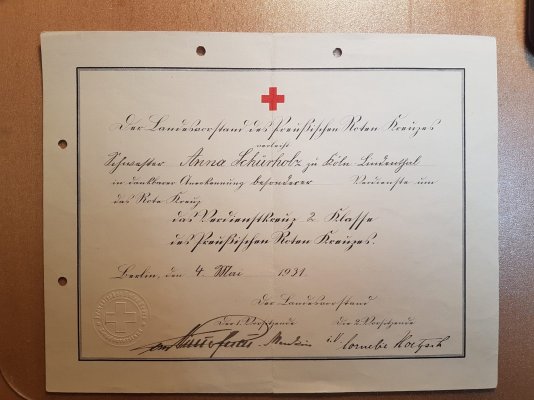 Der Landesvorstand des Preußischen Roten Kreuzes
verleiht
Schwester Anna Schierholz zu Köln-Lindenthal
in dankbarer Anerkennung besonderer Verdienste um
das Rote Kreuz
das Verdienstkreuz 2 Klasse
des Preußischen Roten Kreuzes.
Berlin, den 4. Mai 1931
Der Landesvorstand
Der 1. Vorsitzende Der 2. Vorsitzende
i.V. Cornelie